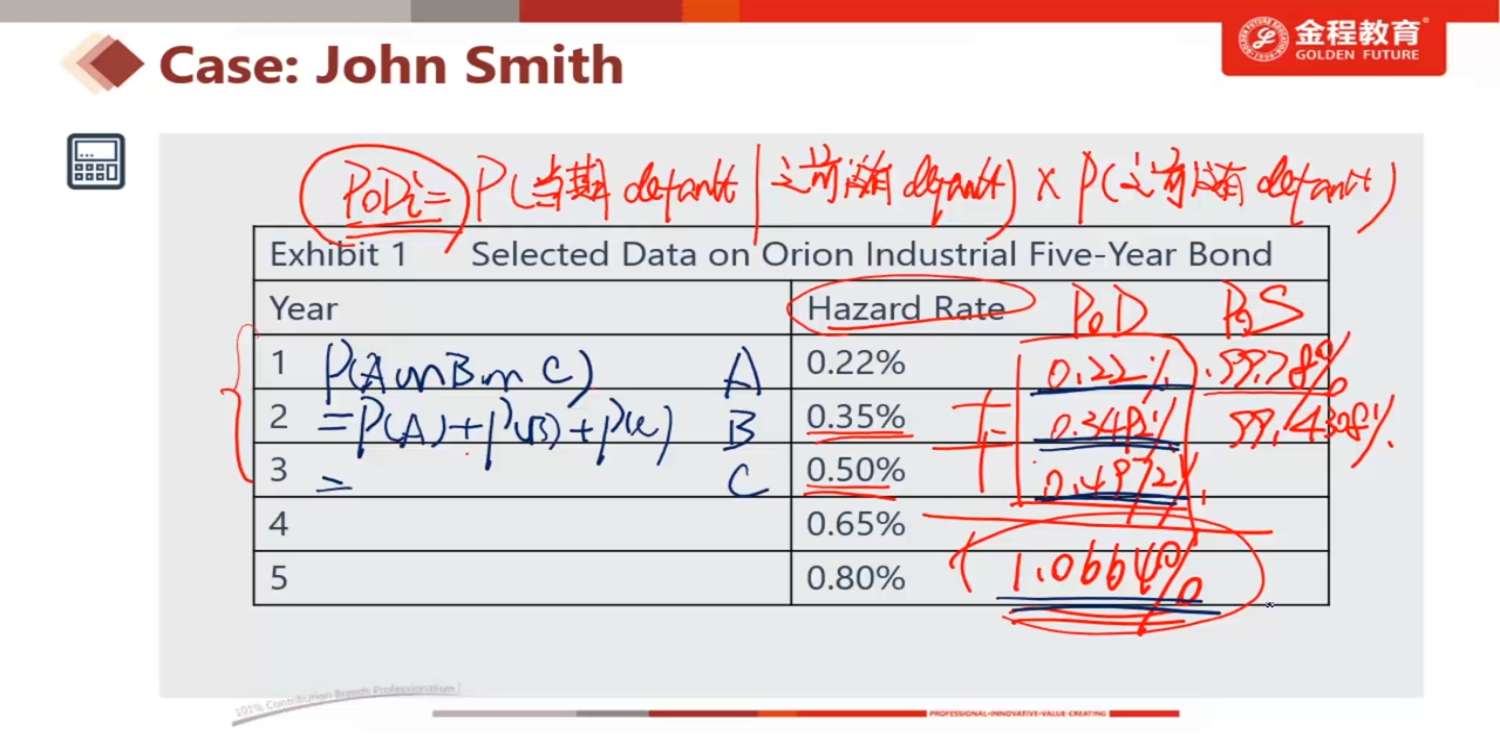 Case: John Smith
金程教育
GOLDEN FUTURE
PoDi = P(当期 default | 之前没有 default) × P(之前没有 default)
Exhibit 1 Selected Data on Orion Industrial Five-Year Bond
Year Hazard Rate PoD PoS
1 P(A or B or C) A 0.22% 0.22% 99.78%
2 = P(A) + P(B) + P(C) B 0.35% 0.3492% 99.4308%
3 = C 0.50% 0.4972%
4 0.65%
5 0.80% 1.0664%
101% Contribution Breeds Professionalism
PROFESSIONAL·INNOVATIVE·VALUE CREATING